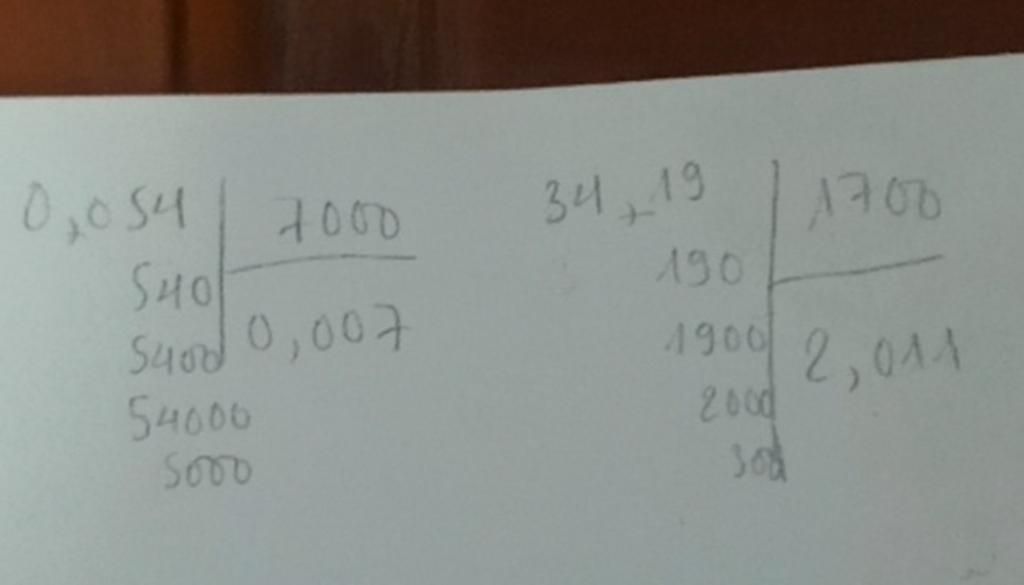 0,054 7000
540
0,007
5400
54000
5000
34,19 1700
190
1900
2,011
2000
300